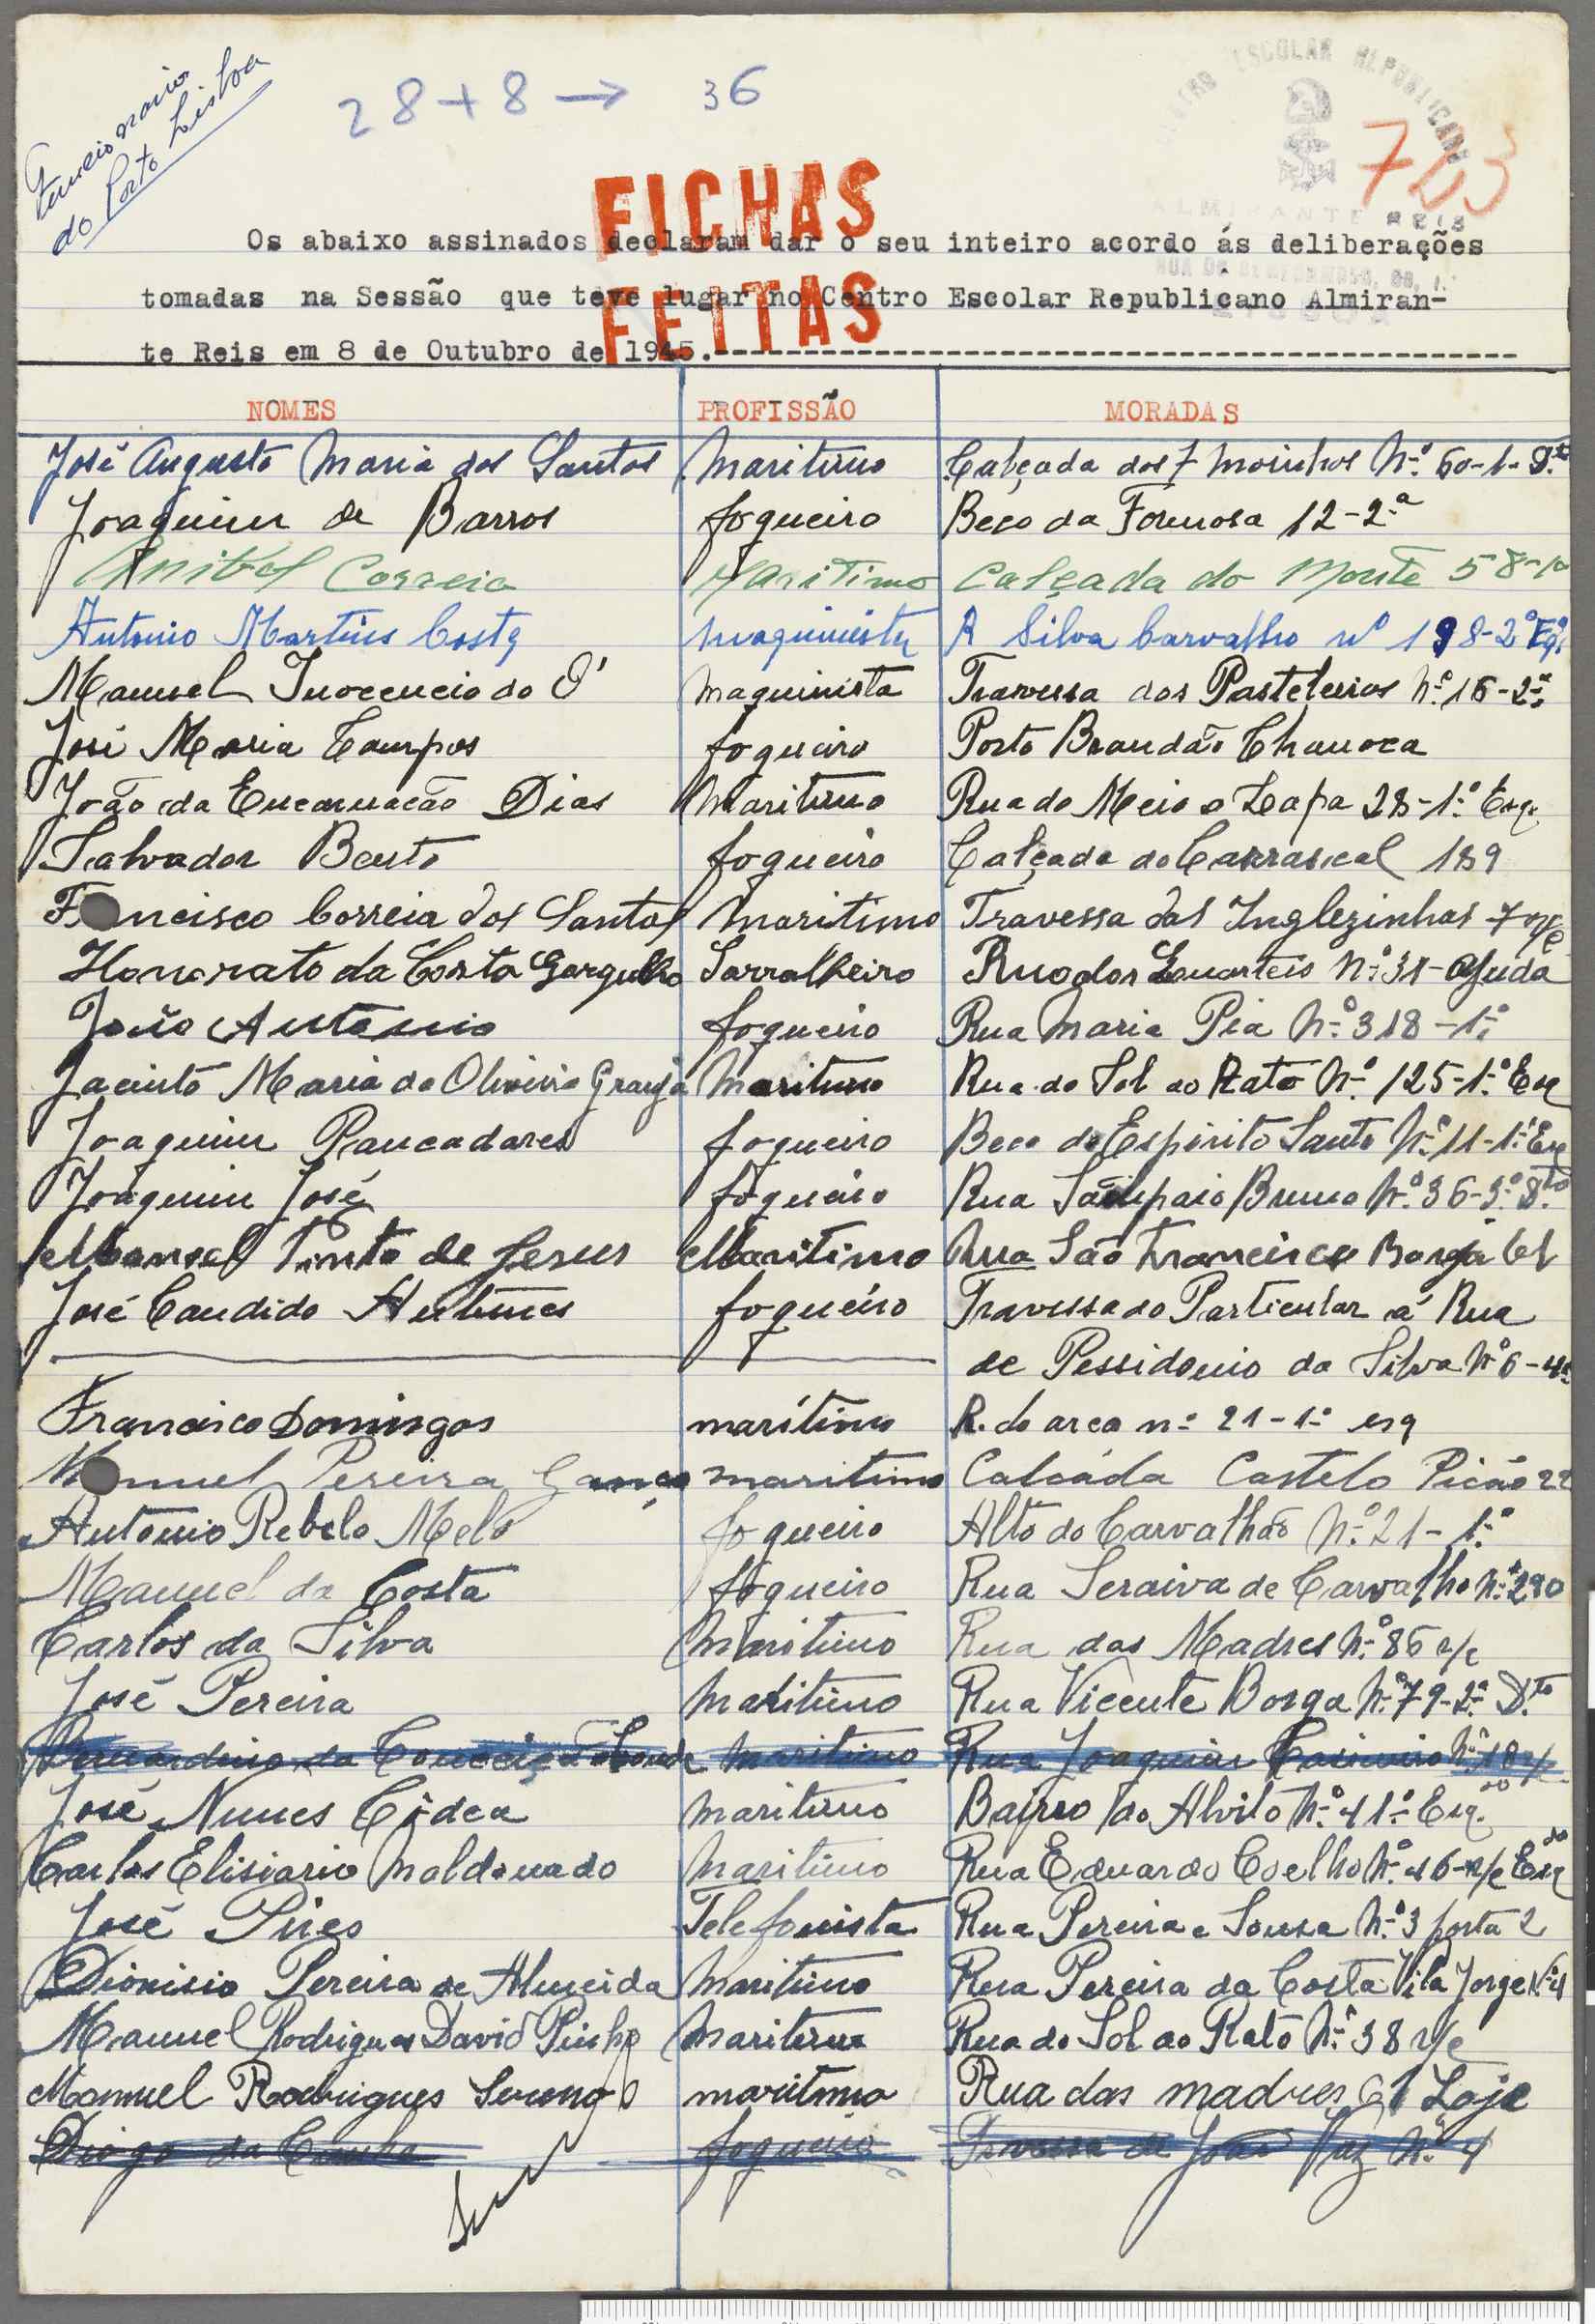 Funcionarios
do Porto Lisboa
28+8 → 36
CENTRO ESCOLAR REPUBLICANO
ALMIRANTE REIS
703
FICHAS
FEITAS
Os abaixo assinados declaram dar o seu inteiro acordo ás deliberações
tomadas na Sessão que teve lugar no Centro Escolar Republicano Almiran-
te Reis em 8 de Outubro de 1945.
NOMES PROFISSÃO MORADAS
José Augusto Maria dos Santos Maritimo Calçada dos 7 Moinhos Nº 60-1-D.to
Joaquim de Barros fogueiro Beco da Formosa 12-2º
Anibal Correia Maritimo Calçada do Monte 58-1º
Antonio Martins Costa maquinista R Silva Carvalho nº 198-2º Eqº
Manuel Inocencio do Ó maquinista Travessa dos Pasteleiros Nº 16-2º
José Maria Campos fogueiro Porto Brandão
João da Encarnacão Dias Maritimo Rua do Meio a Lapa 28-1º Esq.
Salvador Bento fogueiro Calçada do Carrascal 189
Francisco Correia dos Santos Maritimo Travessa das Inglezinhas 7
Honorato da Costa Gargulho Sarralheiro Rua dos Quarteis Nº 31-Ajuda
João Antonio fogueiro Rua Maria Pia Nº 318-1º
Jacinto Maria de Oliveira Granja Maritimo Rua do Sol ao Rato Nº 125-1º Esq
Joaquim Pancadares fogueiro Beco do Espirito Santo Nº 11-1º Esq
Joaquim José fogueiro Rua Sampaio Bruno Nº 36-3º D.to
Manuel Pinto de Jesus Maritimo Rua São Francisco Borja 61
José Candido Antunes fogueiro Travessa do Particular á Rua
de Possidonio da Silva Nº 6-4º
Francisco Domingos marítimo R. do arco nº 21-1º esq
Manuel Pereira maritimo Calcáda Castelo Picão 22
Antonio Rebelo Melo fogueiro Alto do Carvalhão Nº 21-1º
Manuel da Costa fogueiro Rua Seraiva de Carvalho Nº 290
Carlos da Silva Maritimo Rua das Madres Nº 86 r/c
José Pereira Maritimo Rua Vicente Borga Nº 79-2º D.to
Bernardino da Conceição Maritimo Rua Joaquim Casimiro Nº 18
José Nunes Maritimo Bairro do Alvito Nº 41º Esq.
Carlos Elisiario Maldonado Maritimo Rua Eduardo Coelho Nº 46-r/c Esq
José Pires Telefonista Rua Pereira e Sousa Nº 3 porta 2
Dionisio Pereira de Almeida Maritimo Rua Pereira da Costa Vila Jorge Nº 4
Manuel Rodrigues David Pinho Maritimo Rua do Sol ao Rato Nº 38 r/c
Manuel Rodrigues Sereno maritimo Rua das madres 61 Loja
Diogo da Cunha fogueiro Travessa de João Vaz Nº 4